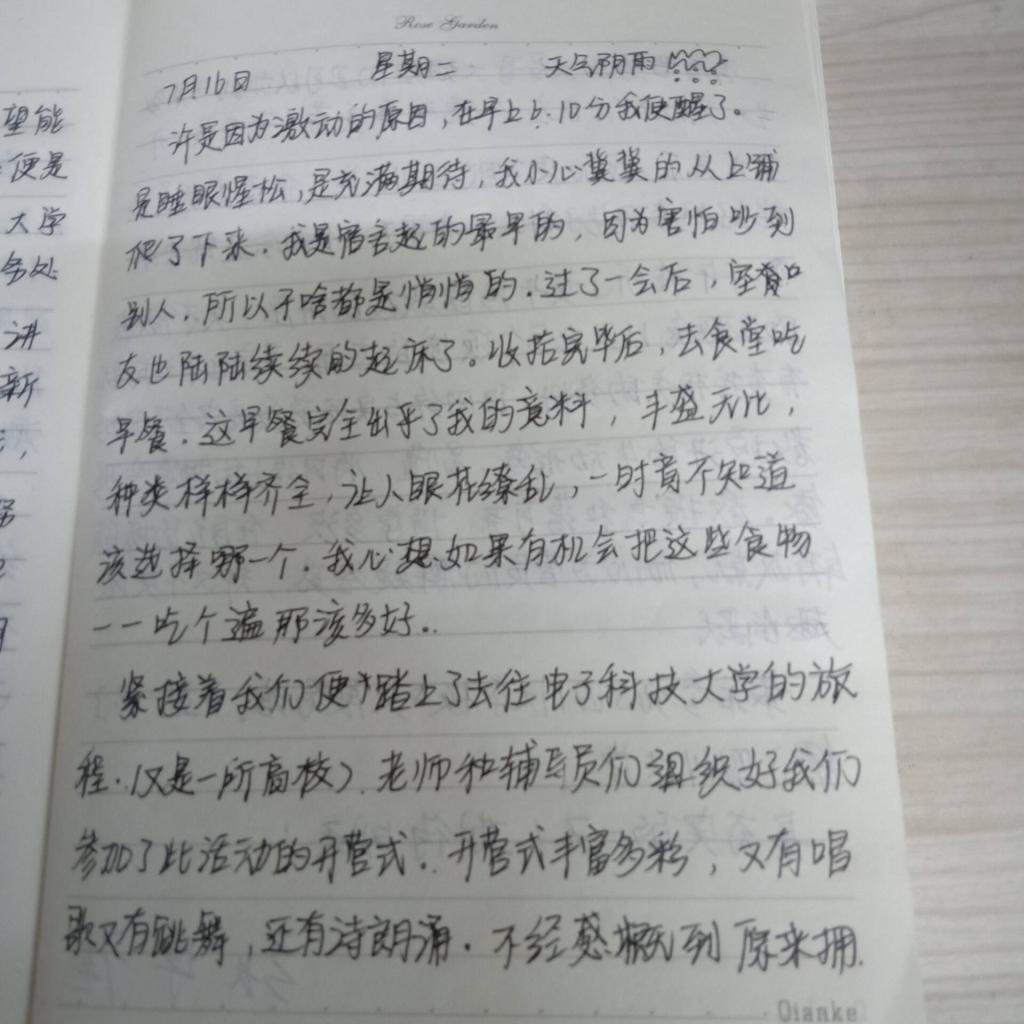 Rose Garden
7月16日 星期二 天气阴雨
许是因为激动的原因,在早上6.10分我便醒了。
是睡眼惺松,是充满期待,我小心冀冀的从上铺
爬了下来.我是宿舍起的最早的,因为害怕吵到
别人.所以干啥都是悄悄的.过了一会后,室
友也陆陆续续的起床了。收拾完毕后,去食堂吃
早餐.这早餐完全出乎了我的意料,丰盛无比,
种类样样齐全,让人眼花缭乱,一时竟不知道
该选择哪一个.我心想如果有机会把这些食物
一一吃个遍那该多好..
紧接着我们便踏上了去往电子科技大学的旅
程.(又是一所高校)老师和辅导员们组织好我们
参加了此活动的开营式.开营式丰富多彩,又有唱
歌又有跳舞,还有诗朗涌.不经感概到原来拥.
Qianke
望能
便是
大学
务处
讲
新